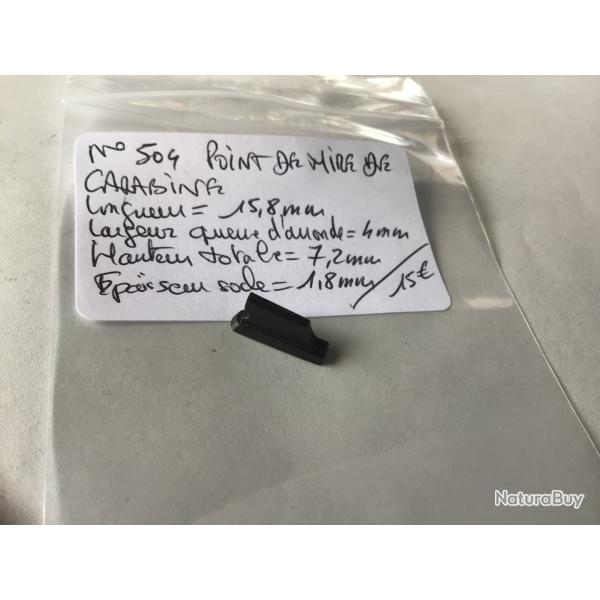 N° 504 POINT DE MIRE DE
CARABINE
longueur = 15,8 mm
largeur queue d'aronde = 4 mm
Hauteur totale = 7,2 mm
Epaisseur socle = 1,8 mm / 15 €
NaturaBuy